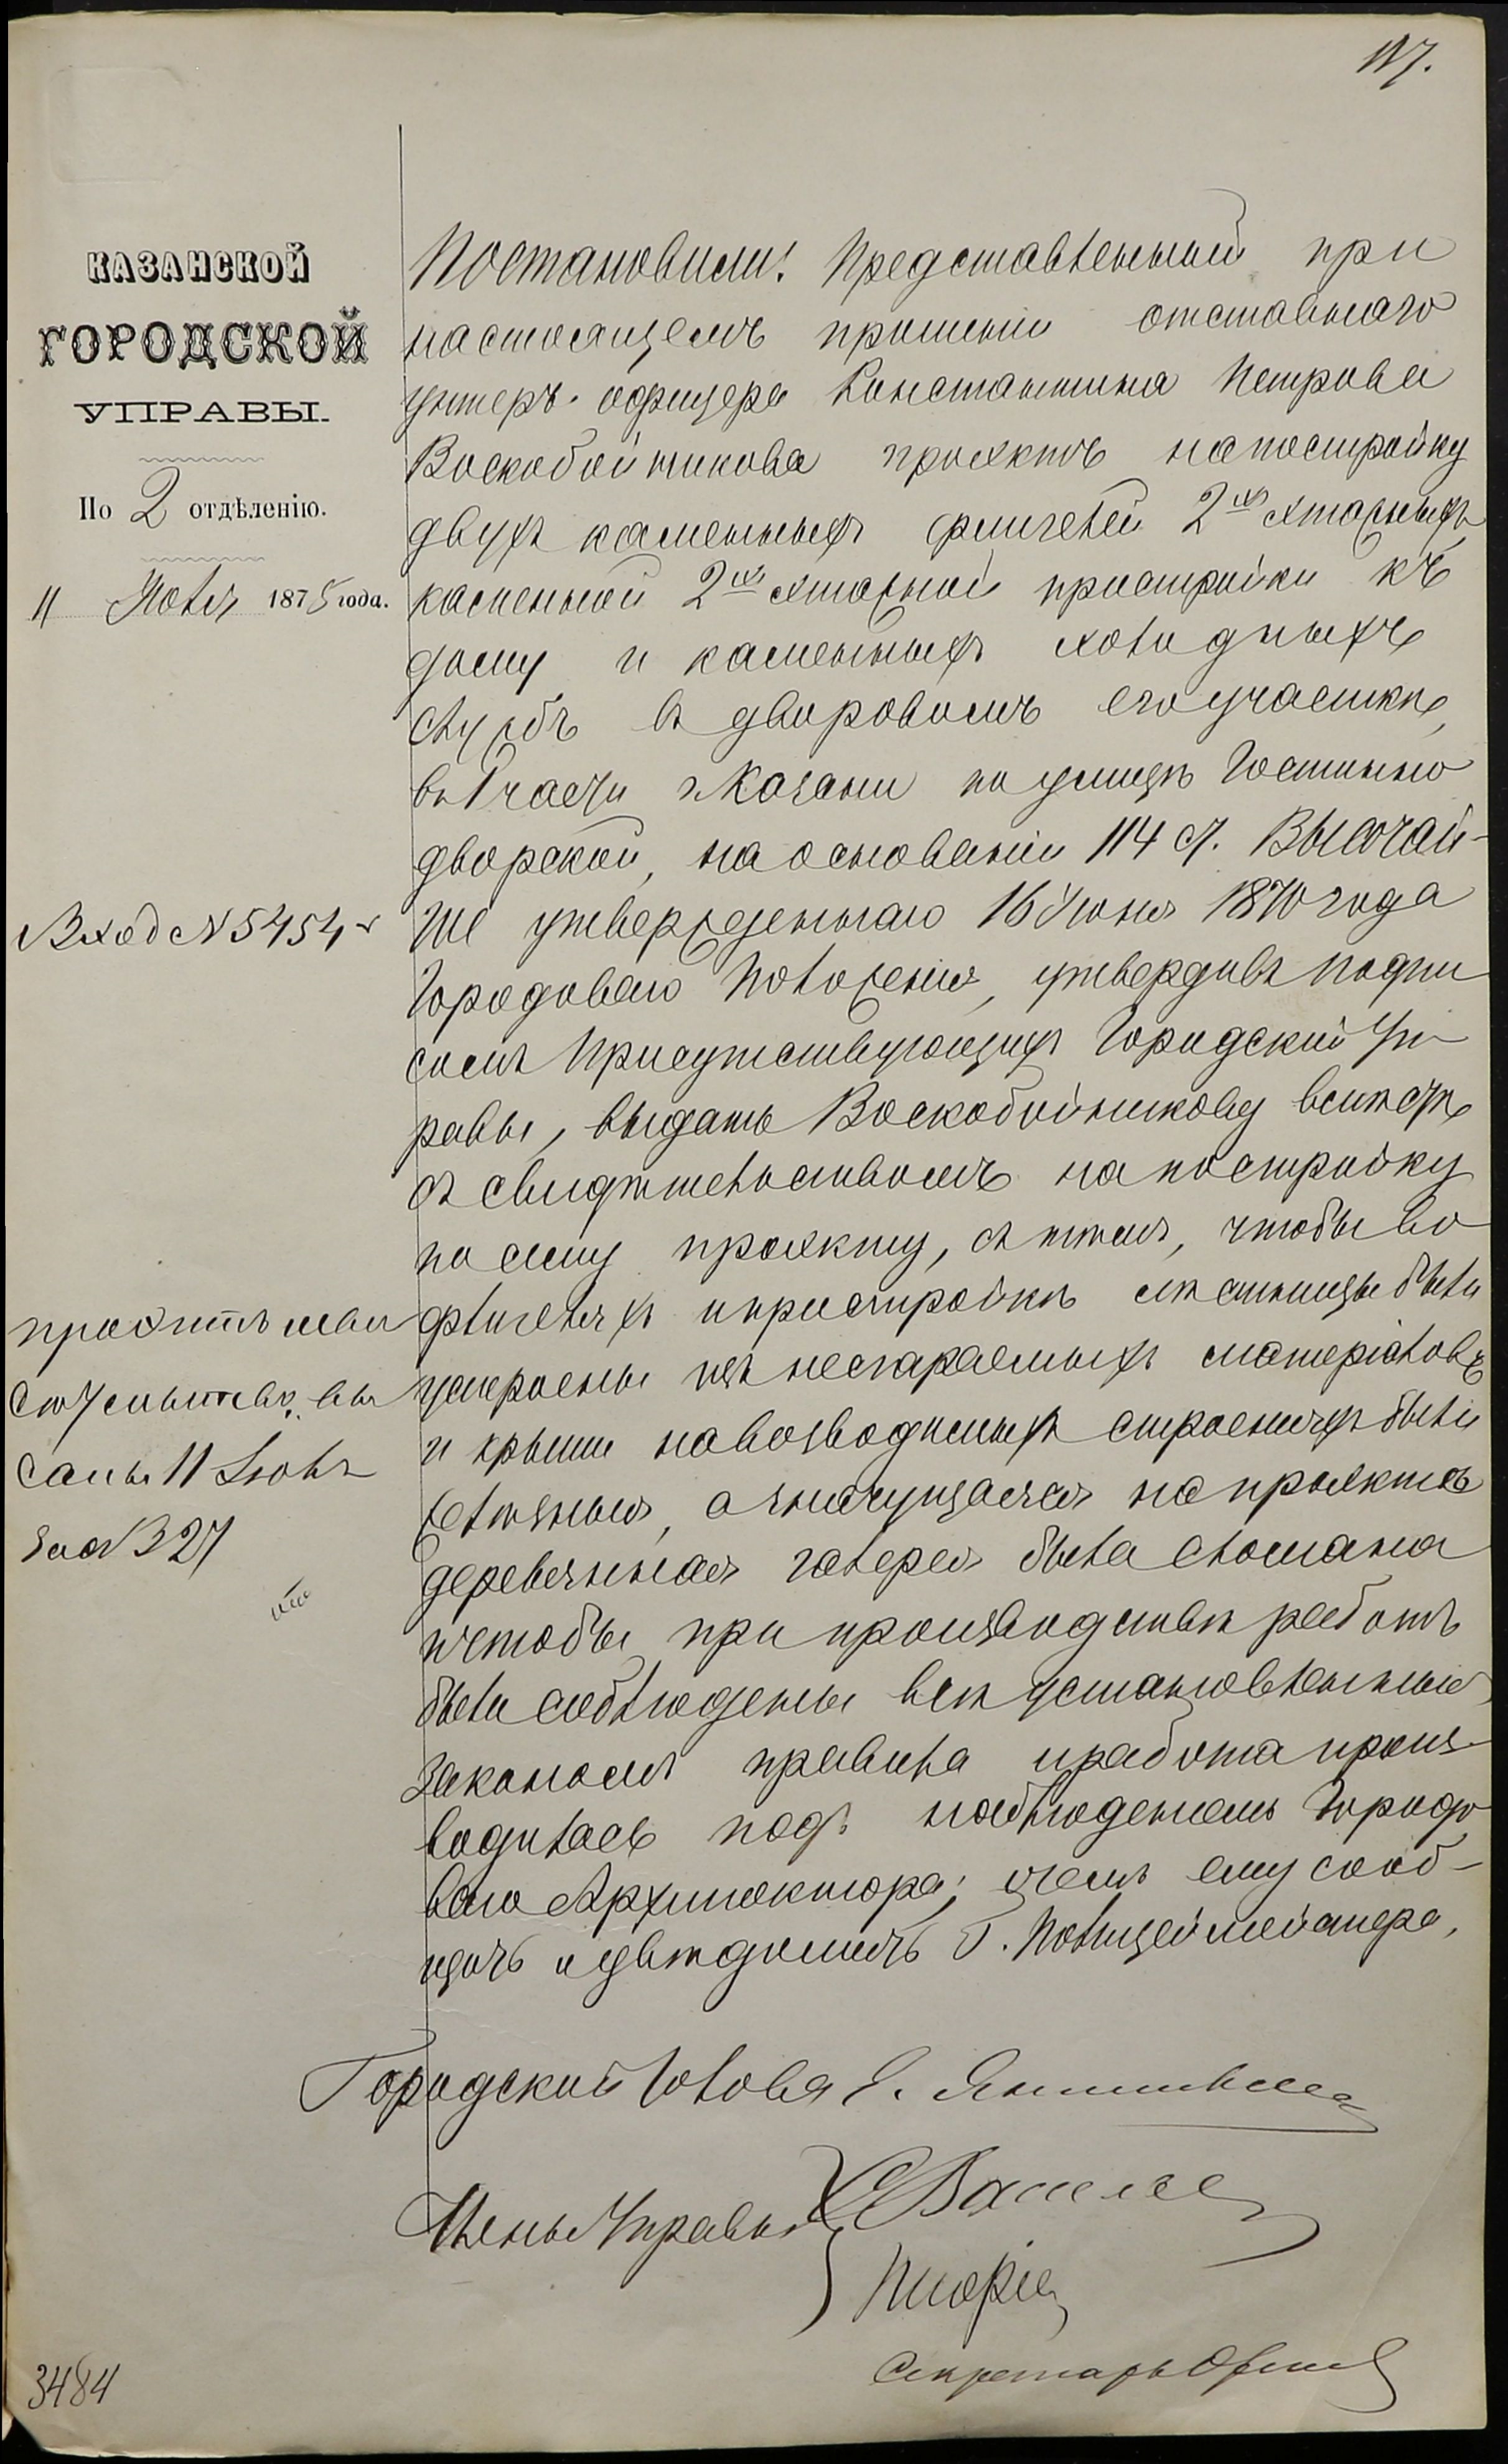 117.
КАЗАНСКОЙ
ГОРОДСКОЙ
УПРАВЫ.
По 2 отдѣленію.
11 Іюля 1875 года.
Вход №5454
проэктъ и
свидѣтельство вы
саны 11 Іюля
за №327
Постановили: Представленный при
настоящемъ прошеніи отставнаго
унтеръ-офицера Константина Петрова
Воскобойникова проэктъ на постройку
двухъ каменныхъ флигелей 2хъ этажныхъ,
каменной 2хъ этажной пристройки къ
дому и каменныхъ холодныхъ
службъ въ дворовомъ его участкѣ,
въ 1 части г. Казани по улицѣ Гостинно
дворской, на основаніи 114 ст. Высочай-
ше утвержденнаго 16 Іюня 1870 года
Городоваго Положенія, утвердивъ подпи
сомъ Присутствующихъ Городской Уп
равы, выдать Воскобойникову вмѣстѣ
съ свидѣтельствомъ на постройку
по сему проэкту, съ тѣмъ, чтобы во
флигеляхъ и пристройкѣ лѣстницы были
устроены изъ несгараемыхъ матеріаловъ
и крыши на возводимыхъ строеніяхъ были
желѣзныя, а значущаяся на проэктѣ
деревянная галерея была сломана
и чтобы при производствѣ работъ
были соблюдены всѣ установленныя
закономъ правила и работа произ-
водилась подъ наблюденіемъ Городо
ваго Архитектора; о чемъ ему сооб-
щить и увѣдомить Г. Полицеймейстера.
Городской Голова Э. Янишевскій
Члены Управы
Секретарь
3484